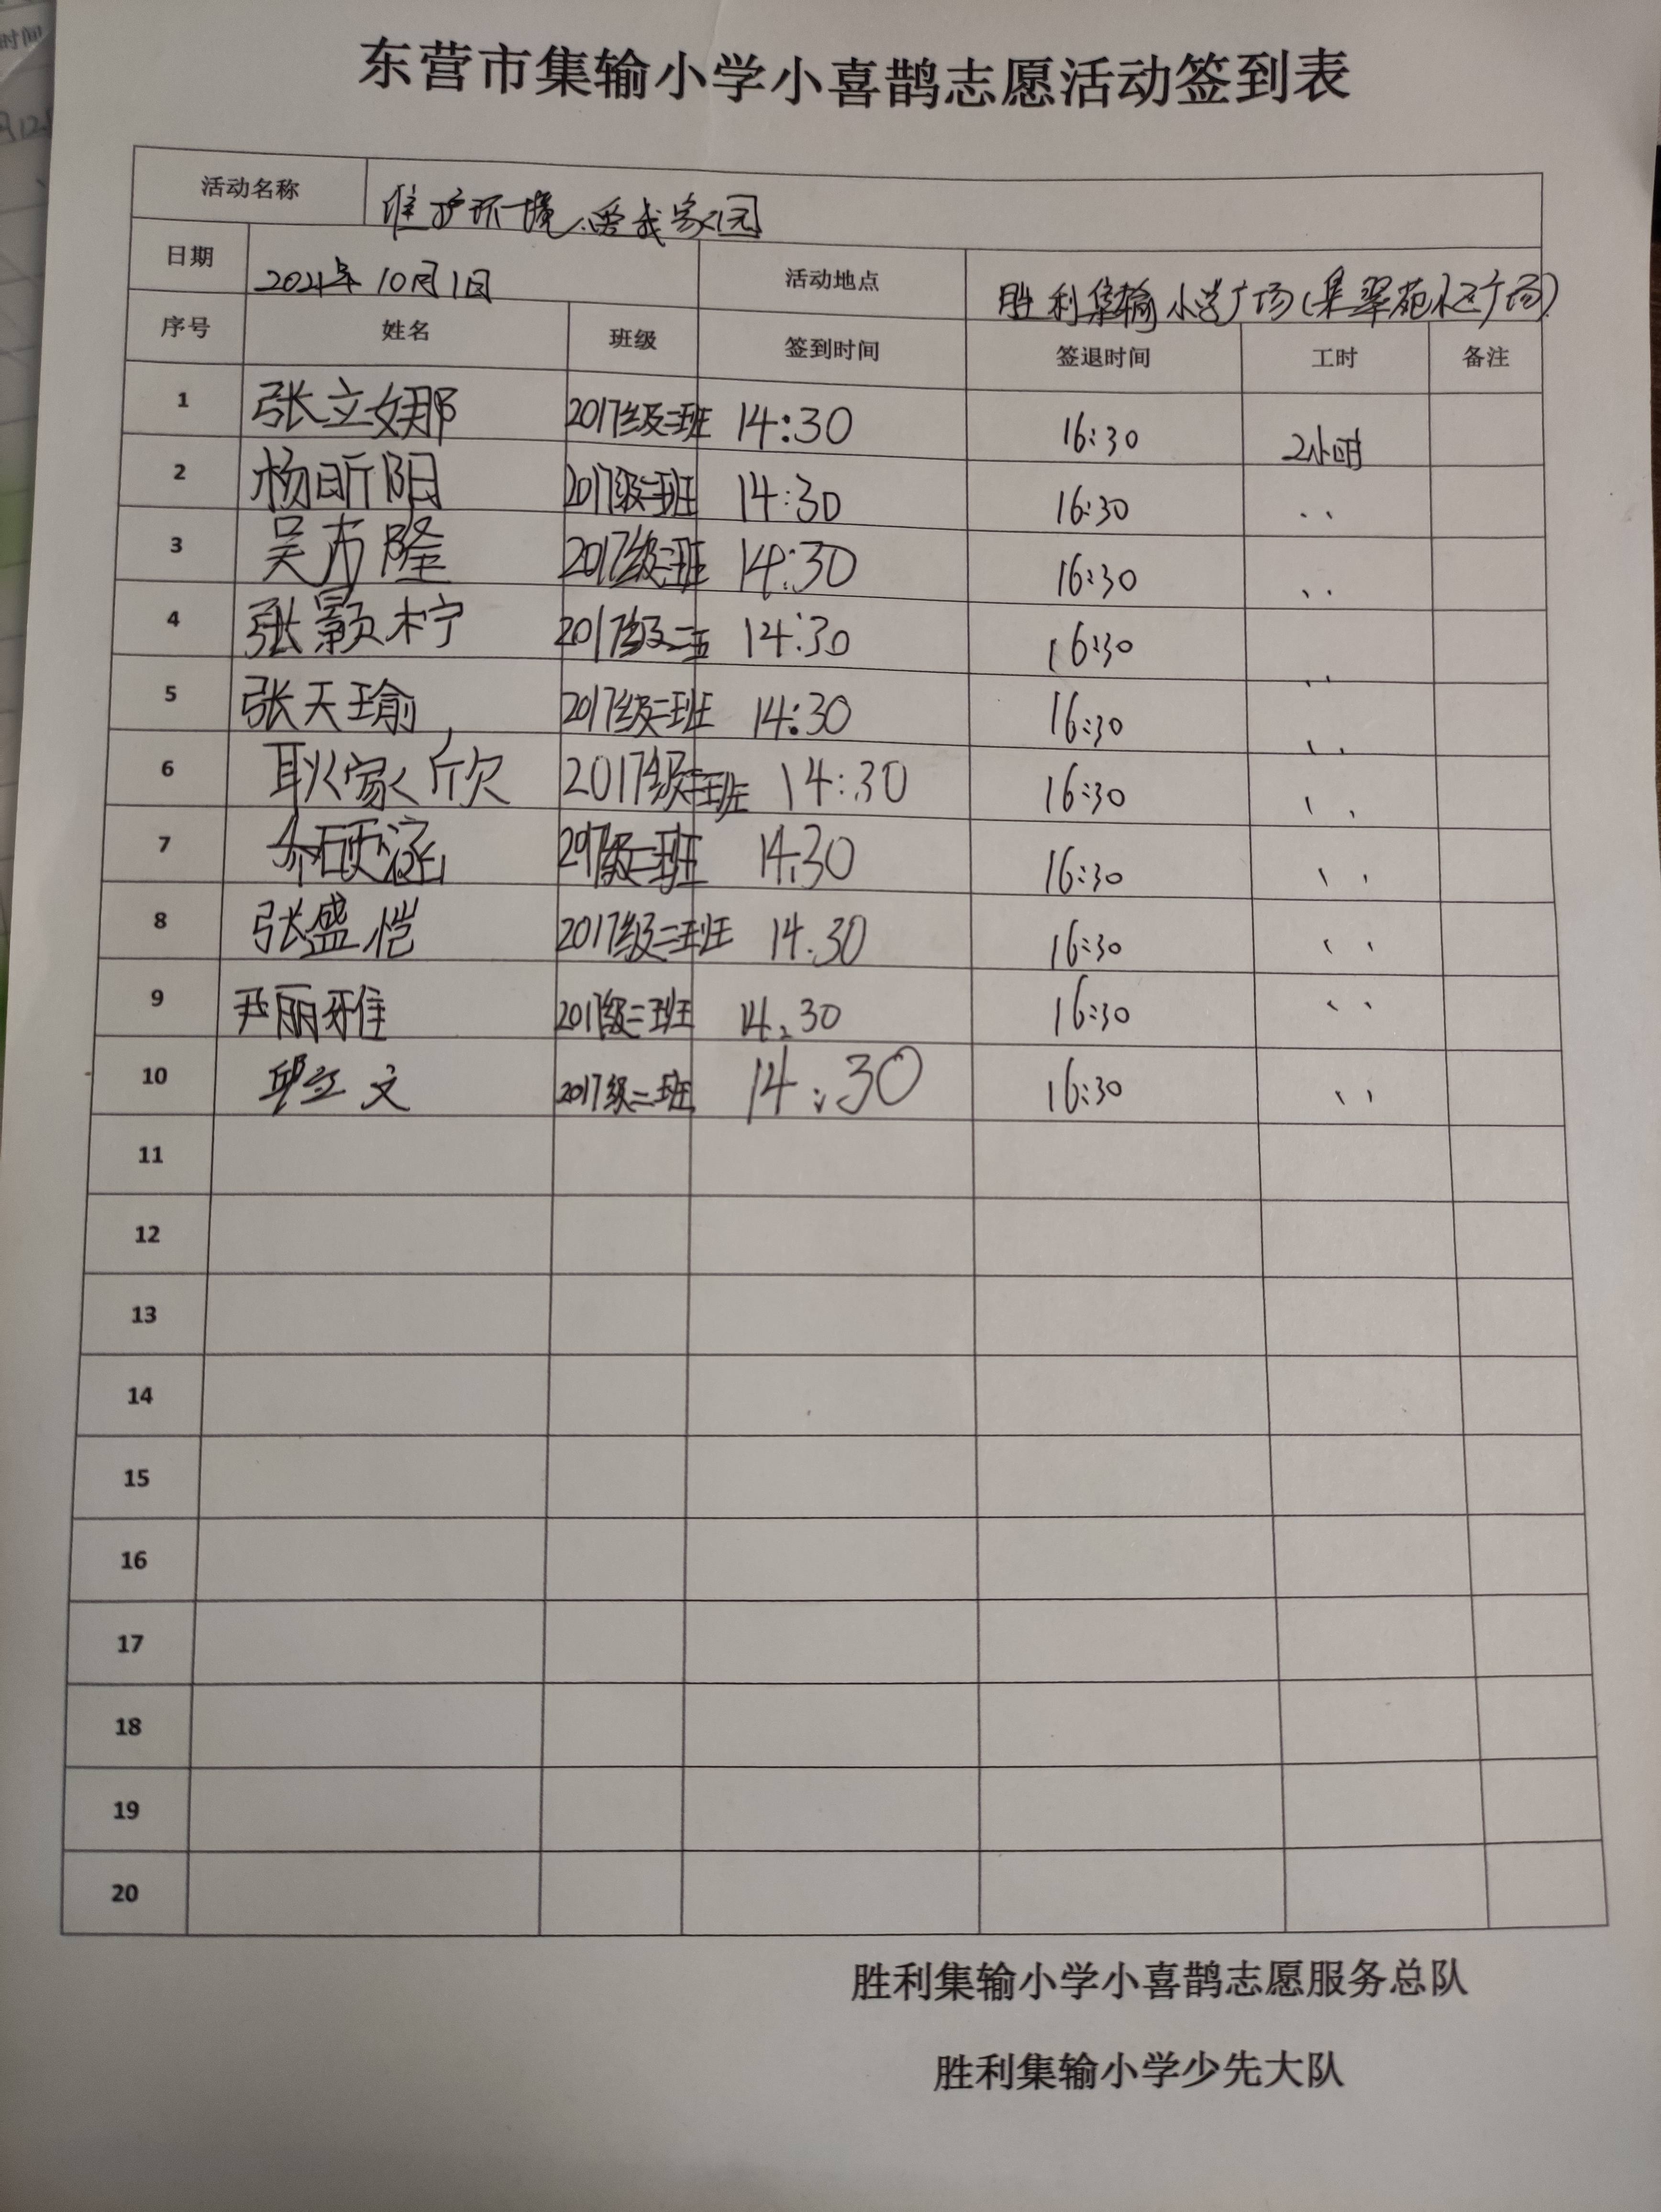 东营市集输小学小喜鹊志愿活动签到表
活动名称 维护环境、爱我家园
日期 2021年10月1日 活动地点 胜利集输小学广场(集翠苑小区广场)
序号 姓名 班级 签到时间 签退时间 工时 备注
1 张立娜 2017级二班 14:30 16:30 2小时
2 杨昕阳 2017级二班 14:30 16:30 、、
3 吴 隆 2017级二班 14:30 16:30 、、
4 张颢柠 2017级二 14:30 16:30 、、
5 张天瑜 2017级二班 14:30 16:30 、、
6 耿家欣 2017级二班 14:30 16:30 、、
7 硕涵 2017级二班 14:30 16:30 、、
8 张盛恺 2017级二班 14.30 16:30 、、
9 尹丽雅 2017级二班 14:30 16:30 、、
10 邱立文 2017级二班 14:30 16:30 、、
11
12
13
14
15
16
17
18
19
20
胜利集输小学小喜鹊志愿服务总队
胜利集输小学少先大队